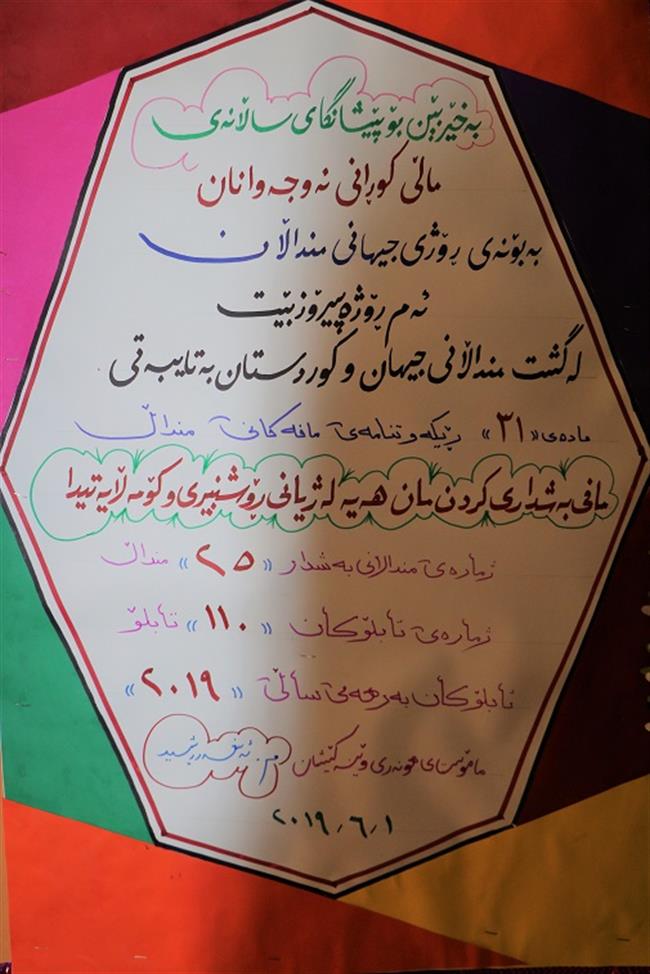 بەخێربێن بۆ پێشانگای ساڵانەی
ماڵی کوڕانی نەوجەوانان
بەبۆنەی ڕۆژی جیهانی منداڵان
ئەم ڕۆژە پیرۆزبێت
لەگشت منداڵانی جیهان و کوردستان بەتایبەتی
مادەی «٣١» ڕێکەوتنامەی مافەکانی منداڵ
مافی بەشداری کردن مان هەیە لە ژیانی ڕۆشنبیری و کۆمەڵایەتیدا
ژمارەی منداڵانی بەشدار «٢٥» منداڵ
ژمارەی تابلۆکان «١١٠» تابلۆ
تابلۆکان بەرهەمی ساڵی «٢٠١٩»
مامۆستای هونەری وێنەکێشان م.
٢٠١٩/٦/١